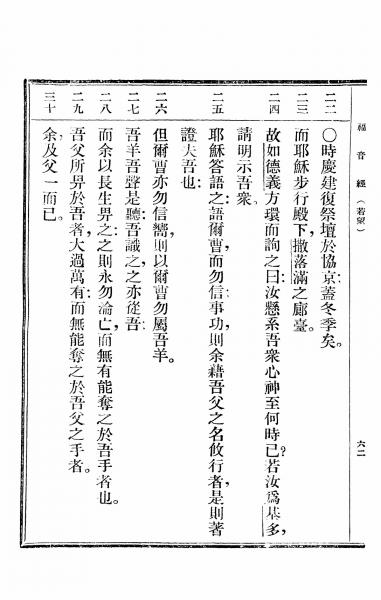 福音經（若望） 六二
二二 〇時慶建復祭壇於協京，蓋冬季矣。
二三 而耶穌步行殿下，撒落滿之廊臺。
二四 故如德義方環而詢之曰：汝懸系吾衆心神至何時已？若汝爲基多，
請明示吾衆。
二五 耶穌答語之：語爾曹而勿信；事功，則余藉吾父之名攸行者，是則著
證夫吾也；
二六 但爾曹亦勿信嚮，則以爾曹勿屬吾羊。
二七 吾羊吾聲是聽；吾識之，之亦從吾；
二八 而余以長生畀之；之則永勿淪亡，而無有能奪之於吾手者也。
二九 吾父所畀於吾者，大過萬有，而無能奪之於吾父之手者。
三十 余及父一而已。